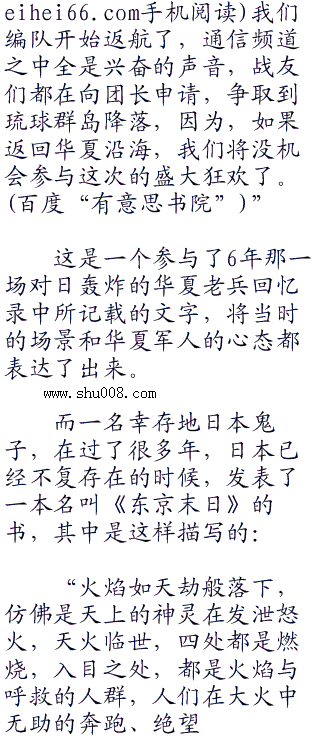 eihei66.com手机阅读)我们
编队开始返航了，通信频道
之中全是兴奋的声音，战友
们都在向团长申请，争取到
琉球群岛降落，因为，如果
返回华夏沿海，我们将没机
会参与这次的盛大狂欢了。
(百度“有意思书院”)”
这是一个参与了6年那一
场对日轰炸的华夏老兵回忆
录中所记载的文字，将当时
的场景和华夏军人的心态都
表达了出来。
www.shu008.com
而一名幸存地日本鬼
子，在过了很多年，日本已
经不复存在的时候，发表了
一本名叫《东京末日》的
书，其中是这样描写的：
“火焰如天劫般落下，
仿佛是天上的神灵在发泄怒
火，天火临世，四处都是燃
烧，入目之处，都是火焰与
呼救的人群，人们在大火中
无助的奔跑、绝望